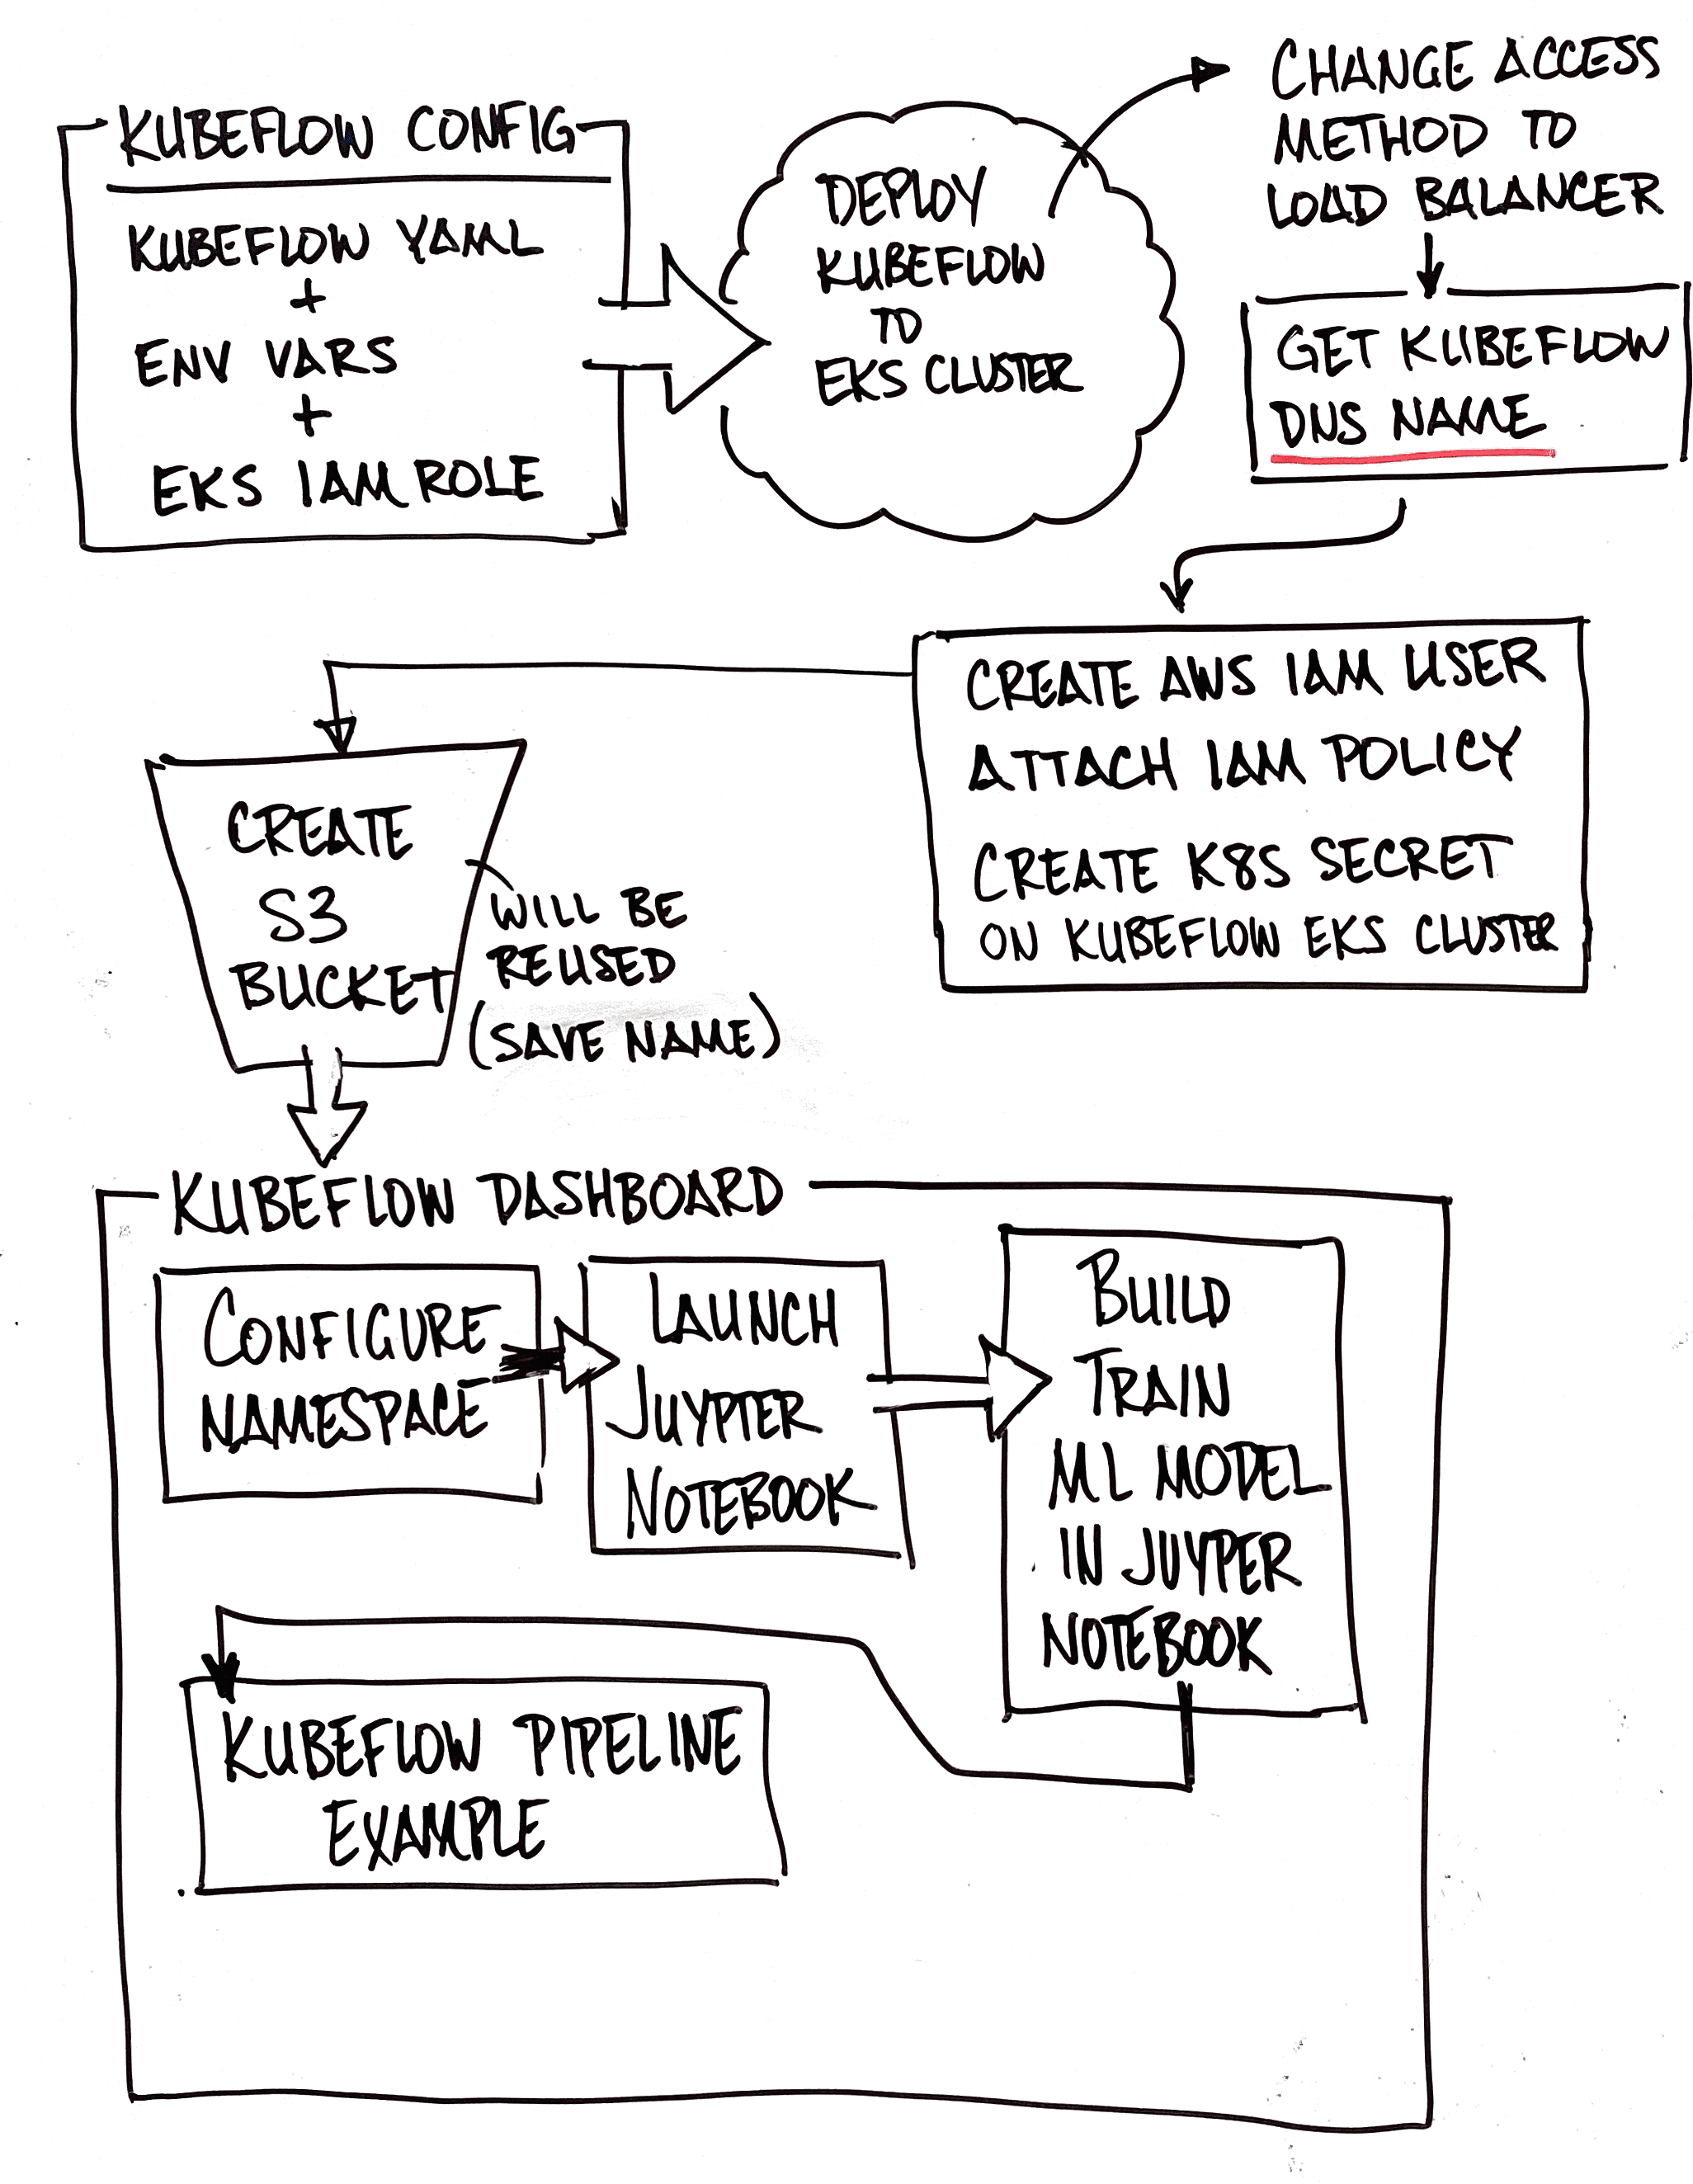 KUBEFLOW CONFIG
KUBEFLOW YAML
+
ENV VARS
+
EKS IAM ROLE
DEPLOY
KUBEFLOW
TO
EKS CLUSTER
CHANGE ACCESS
METHOD TO
LOAD BALANCER
GET KUBEFLOW
DNS NAME
CREATE AWS IAM USER
ATTACH IAM POLICY
CREATE K8S SECRET
ON KUBEFLOW EKS CLUSTER
CREATE
S3
BUCKET
WILL BE
REUSED
(SAVE NAME)
KUBEFLOW DASHBOARD
CONFIGURE
NAMESPACE
LAUNCH
JUYPTER
NOTEBOOK
BUILD
TRAIN
ML MODEL
IN JUYPER
NOTEBOOK
KUBEFLOW PIPELINE
EXAMPLE